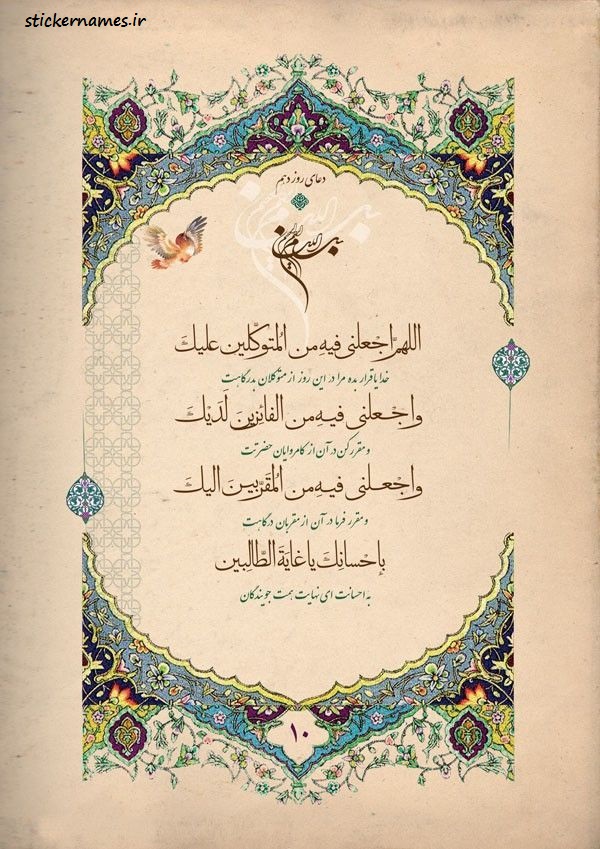 stickernames.ir
دعای روز دهم
بسم الله الرحمن الرحیم
اللهمَّ اجْعلنی فیهِ من المُتوکّلین علیكَ
خدایا قرار بده مرا در این روز از متوکلان بدرگاهت
واجْعلنی فیهِ من الفائِزینَ لَدَیْكَ
و مقرر کن در آن از کامروایان حضرتت
واجْعلنی فیهِ من المُقَرّبینَ الیكَ
و مقرر فرما در آن از مقربان درگاهت
بإحْسانِكَ یاغایَةَ الطّالِبین
به احسانت ای نهایت همت جویندگان
۱۰